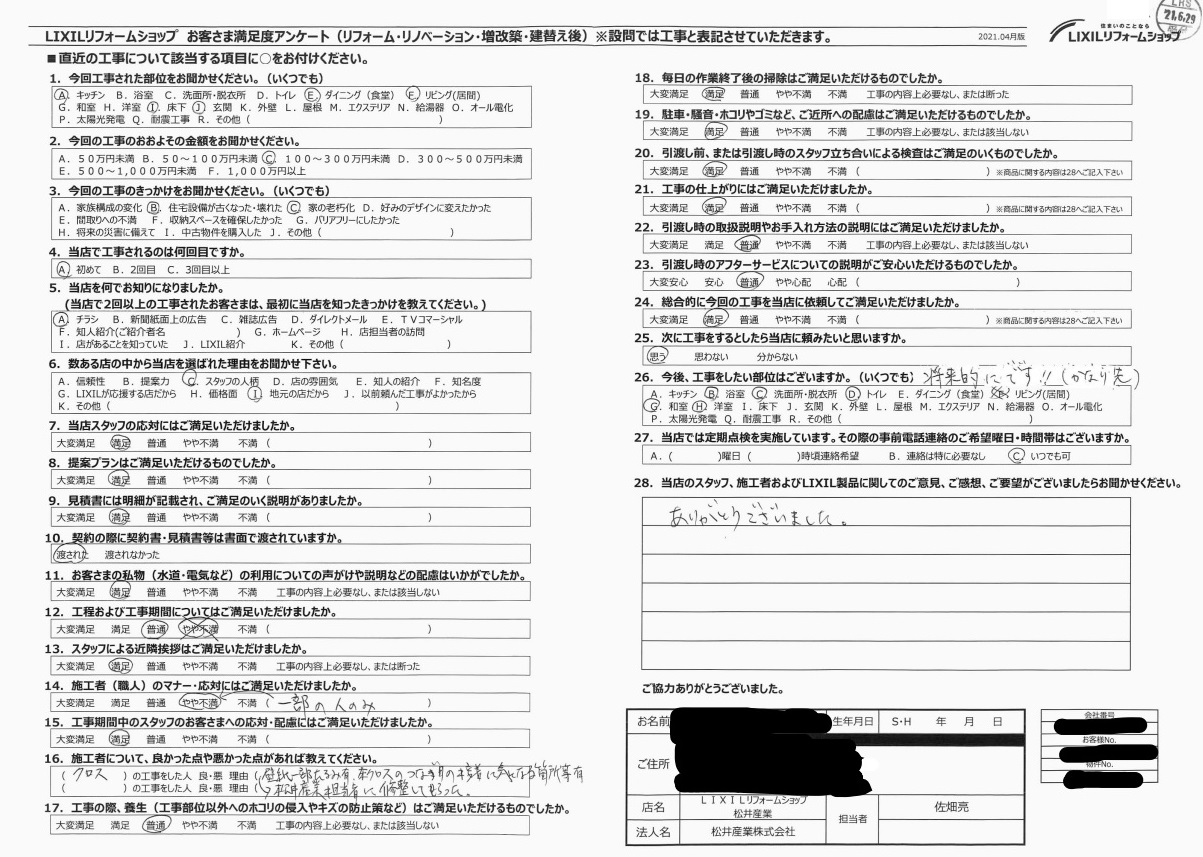 LIXILリフォームショップ お客さま満足度アンケート（リフォーム・リノベーション・増改築・建替え後）※設問では工事と表記させていただきます。
2021.04月版
住まいのことなら
LIXILリフォームショップ
21.6.29
■直近の工事について該当する項目に○をお付けください。
1．今回工事された部位をお聞かせください。（いくつでも）
A．キッチン B．浴室 C．洗面所・脱衣所 D．トイレ E．ダイニング（食堂） F．リビング(居間)
G．和室 H．洋室 I．床下 J．玄関 K．外壁 L．屋根 M．エクステリア N．給湯器 O．オール電化
P．太陽光発電 Q．耐震工事 R．その他（ ）
2．今回の工事のおおよその金額をお聞かせください。
A．50万円未満 B．50～100万円未満 C．100～300万円未満 D．300～500万円未満
E．500～1,000万円未満 F．1,000万円以上
3．今回の工事のきっかけをお聞かせください。（いくつでも）
A．家族構成の変化 B．住宅設備が古くなった・壊れた C．家の老朽化 D．好みのデザインに変えたかった
E．間取りへの不満 F．収納スペースを確保したかった G．バリアフリーにしたかった
H．将来の災害に備えて I．中古物件を購入した J．その他（ ）
4．当店で工事されるのは何回目ですか。
A．初めて B．2回目 C．3回目以上
5．当店を何でお知りになりましたか。
(当店で2回以上の工事されたお客さまは、最初に当店を知ったきっかけを教えてください。)
A．チラシ B．新聞紙面上の広告 C．雑誌広告 D．ダイレクトメール E．TVコマーシャル
F．知人紹介(ご紹介者名 ) G．ホームページ H．店担当者の訪問
I．店があることを知っていた J．LIXIL紹介 K．その他（ ）
6．数ある店の中から当店を選ばれた理由をお聞かせ下さい。
A．信頼性 B．提案力 C．スタッフの人柄 D．店の雰囲気 E．知人の紹介 F．知名度
G．LIXILが応援する店だから H．価格面 I．地元の店だから J．以前頼んだ工事がよかったから
K．その他（ ）
7．当店スタッフの応対にはご満足いただけましたか。
大変満足 満足 普通 やや不満 不満（ ）
8．提案プランはご満足いただけるものでしたか。
大変満足 満足 普通 やや不満 不満（ ）
9．見積書には明細が記載され、ご満足のいく説明がありましたか。
大変満足 満足 普通 やや不満 不満（ ）
10．契約の際に契約書・見積書等は書面で渡されていますか。
渡された 渡されなかった
11．お客さまの私物（水道・電気など）の利用についての声がけや説明などの配慮はいかがでしたか。
大変満足 満足 普通 やや不満 不満 工事の内容上必要なし、または該当しない
12．工程および工事期間についてはご満足いただけましたか。
大変満足 満足 普通 やや不満 不満（ ）
13．スタッフによる近隣挨拶はご満足いただけましたか。
大変満足 満足 普通 やや不満 不満 工事の内容上必要なし、または断った
14．施工者（職人）のマナー・応対にはご満足いただけましたか。
大変満足 満足 普通 やや不満 不満（一部の人のみ ）
15．工事期間中のスタッフのお客さまへの応対・配慮にはご満足いただけましたか。
大変満足 満足 普通 やや不満 不満（ ）
16．施工者について、良かった点や悪かった点があれば教えてください。
（ クロス ）の工事をした人 良・悪 理由（壁紙一部たるみ有、クロスのつなぎ目の接着に気になる箇所等有
（ ）の工事をした人 良・悪 理由（→松井産業担当者に修整してもらった。
17．工事の際、養生（工事部位以外へのホコリの侵入やキズの防止策など）はご満足いただけるものでしたか。
大変満足 満足 普通 やや不満 不満 工事の内容上必要なし、または該当しない
18．毎日の作業終了後の掃除はご満足いただけるものでしたか。
大変満足 満足 普通 やや不満 不満 工事の内容上必要なし、または断った
19．駐車・騒音・ホコリやゴミなど、ご近所への配慮はご満足いただけるものでしたか。
大変満足 満足 普通 やや不満 不満 工事の内容上必要なし、または該当しない
20．引渡し前、または引渡し時のスタッフ立ち合いによる検査はご満足のいくものでしたか。
大変満足 満足 普通 やや不満 不満（ ）※商品に関する内容は28へご記入下さい
21．工事の仕上がりにはご満足いただけましたか。
大変満足 満足 普通 やや不満 不満（ ）※商品に関する内容は28へご記入下さい
22．引渡し時の取扱説明やお手入れ方法の説明にはご満足いただけましたか。
大変満足 満足 普通 やや不満 不満 工事の内容上必要なし、または該当しない
23．引渡し時のアフターサービスについての説明がご安心いただけるものでしたか。
大変安心 安心 普通 やや心配 心配（ ）
24．総合的に今回の工事を当店に依頼してご満足いただけましたか。
大変満足 満足 普通 やや不満 不満（ ）※商品に関する内容は28へご記入下さい
25．次に工事をするとしたら当店に頼みたいと思いますか。
思う 思わない 分からない
26．今後、工事をしたい部位はございますか。（いくつでも）将来的にです!!（かなり先）
A．キッチン B．浴室 C．洗面所・脱衣所 D．トイレ E．ダイニング（食堂） F．リビング(居間)
G．和室 H．洋室 I．床下 J．玄関 K．外壁 L．屋根 M．エクステリア N．給湯器 O．オール電化
P．太陽光発電 Q．耐震工事 R．その他（ ）
27．当店では定期点検を実施しています。その際の事前電話連絡のご希望曜日・時間帯はございますか。
A．（ )曜日（ )時頃連絡希望 B．連絡は特に必要なし C．いつでも可
28．当店のスタッフ、施工者およびLIXIL製品に関してのご意見、ご感想、ご要望がございましたらお聞かせください。
ありがとうございました。
ご協力ありがとうございました。
お名前 生年月日 S・H 年 月 日
ご住所
店名 LIXILリフォームショップ 松井産業 担当者 佐畑亮
法人名 松井産業株式会社
会社番号
お客様No.
物件No.